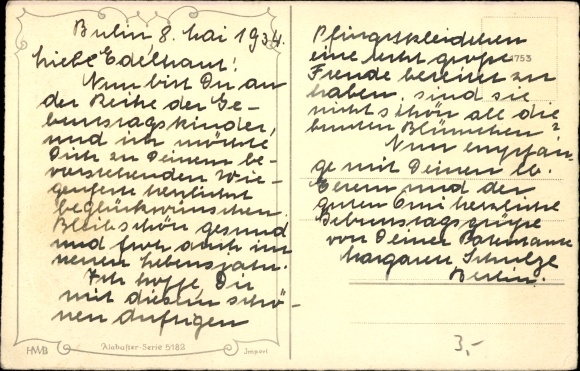 Berlin 8. Mai 1934.
Liebe Edeltraut!
Nun bist Du an
der Reihe der Ge-
burtstagskinder,
und ich möchte
Dich zu Deinem be-
vorstehenden Wie-
genfeste herzlichst
beglückwünschen.
Bleib schön gesund
und froh auch im
neuen Lebensjahr.
Ich hoffe, Dir
mit diesem schö-
nen duftigen
HWB
Alabaster-Serie 5182
Import
Pfingstkleidchen
eine recht große
Freude bereitet zu
haben, sind sie
nicht schön all die
bunten Blümchen?
Nun empfan-
ge mit Deinen lb.
Eltern und der
guten Omi herzliche
Geburtstagsgrüße
von Deiner Patentante
Margarete Schulze
Berlin.
1753
3,-